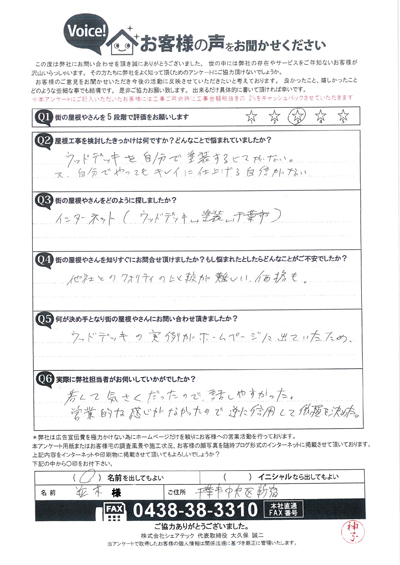 Voice!
お客様の声をお聞かせください
この度は弊社にお問い合わせを頂き誠にありがとうございました。世の中には弊社の存在やサービスをご存知ないお客様が
沢山いらっしゃいます。その方たちに弊社をよく知って頂くためのアンケートにご協力頂けないでしょうか。
お客様のご意見をお聞かせいただき今後の活動に反映させていただきたいと考えております。良かったこと、嬉しかったこと
どのような些細な事でも結構です。是非ご協力お願い致します。出来るだけ具体的に書いて頂ければ幸いです。
Q1 街の屋根やさんを5段階で評価をお願いします ☆ ☆ ☆ ☆ ☆
Q2 屋根工事を検討したきっかけは何ですか?どんなことで悩まれていましたか?
ウッドデッキを自分で塗装するヒマがない。
又、自分でやってもキレイに仕上げる自信がない
Q3 街の屋根やさんをどのように探しましたか?
インターネット(ウッドデッキ 塗装 千葉市)
Q4 街の屋根やさんを知りすぐにお問合せ頂けましたか?もし悩まれたとしたらどんなことがご不安でしたか?
他社とのクオリティの比較が難しい、価格も。
Q5 何が決め手となり街の屋根やさんにお問い合わせ頂きましたか?
ウッドデッキの実例がホームページに出ていたため。
Q6 実際に弊社担当者がお伺いしていかがでしたか?
若くて気さくだったので、話しやすかった。
営業的な感じがなかったので逆に信用して依頼を決めた。
*弊社は広告宣伝費を極力かけない為にホームページだけを頼りにお客様への営業活動を行っております。
本アンケート用紙またはお客様宅の調査風景や施工状況、お客様の顔写真を随時ブログ形式のインターネットに掲載させて頂いております。
上記内容をインターネットや印刷物に掲載させて頂いてもよろしいでしょうか?
下記の中から○印をお付け下さい。
(○)名前を出してもよい ( )イニシャルなら出してもよい
名前 並木 様 ご住所 千葉市中央区新宿
FAX 0438-38-3310 本社直通 FAX番号
ご協力ありがとうございました。
株式会社シェアテック 代表取締役 大久保 誠二
当アンケートで取得したお客様の個人情報は関係法規に基づき厳正に管理いたします。